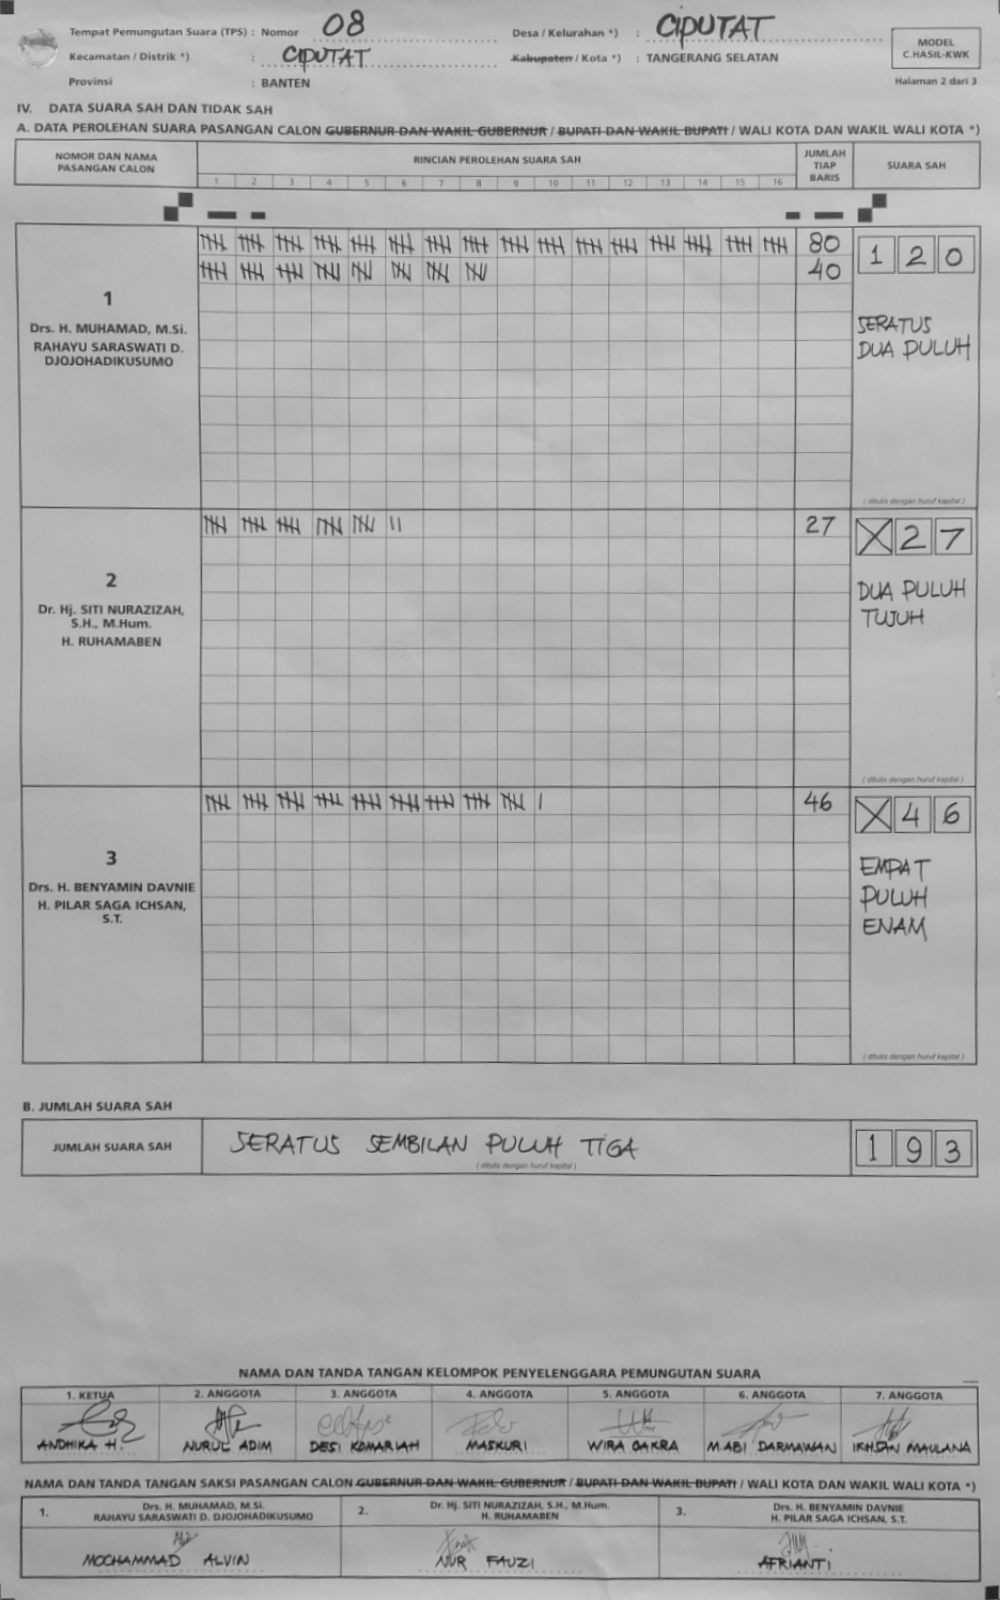 Tempat Pemungutan Suara (TPS) : Nomor 08 Desa / Kelurahan *) : CIPUTAT
Kecamatan / Distrik *) : CIPUTAT Kabupaten / Kota *) : TANGERANG SELATAN
Provinsi : BANTEN
MODEL
C.HASIL-KWK
Halaman 2 dari 3
IV. DATA SUARA SAH DAN TIDAK SAH
A. DATA PEROLEHAN SUARA PASANGAN CALON GUBERNUR DAN WAKIL GUBERNUR / BUPATI DAN WAKIL BUPATI / WALI KOTA DAN WAKIL WALI KOTA *)
NOMOR DAN NAMA
PASANGAN CALON
RINCIAN PEROLEHAN SUARA SAH
JUMLAH
TIAP
BARIS
SUARA SAH
1 2 3 4 5 6 7 8 9 10 11 12 13 14 15 16
1
Drs. H. MUHAMAD, M.Si.
RAHAYU SARASWATI D.
DJOJOHADIKUSUMO
80
40
1 2 0
SERATUS
DUA PULUH
( ditulis dengan huruf kapital )
2
Dr. Hj. SITI NURAZIZAH,
S.H., M.Hum.
H. RUHAMABEN
27
X 2 7
DUA PULUH
TUJUH
( ditulis dengan huruf kapital )
3
Drs. H. BENYAMIN DAVNIE
H. PILAR SAGA ICHSAN,
S.T.
46
X 4 6
EMPAT
PULUH
ENAM
( ditulis dengan huruf kapital )
B. JUMLAH SUARA SAH
JUMLAH SUARA SAH
SERATUS SEMBILAN PULUH TIGA
( ditulis dengan huruf kapital )
1 9 3
NAMA DAN TANDA TANGAN KELOMPOK PENYELENGGARA PEMUNGUTAN SUARA
1. KETUA 2. ANGGOTA 3. ANGGOTA 4. ANGGOTA 5. ANGGOTA 6. ANGGOTA 7. ANGGOTA
ANDHIKA H. NURUL ADIM DESI KOMARIAH MASKURI WIRA CAKRA M.ABI DARMAWAN IKHSAN MAULANA
NAMA DAN TANDA TANGAN SAKSI PASANGAN CALON GUBERNUR DAN WAKIL GUBERNUR / BUPATI DAN WAKIL BUPATI / WALI KOTA DAN WAKIL WALI KOTA *)
1. Drs. H. MUHAMAD, M.Si.
RAHAYU SARASWATI D. DJOJOHADIKUSUMO
MOCHAMMAD ALVIN
2. Dr. Hj. SITI NURAZIZAH, S.H., M.Hum.
H. RUHAMABEN
NUR FAUZI
3. Drs. H. BENYAMIN DAVNIE
H. PILAR SAGA ICHSAN, S.T.
AFRIANTI